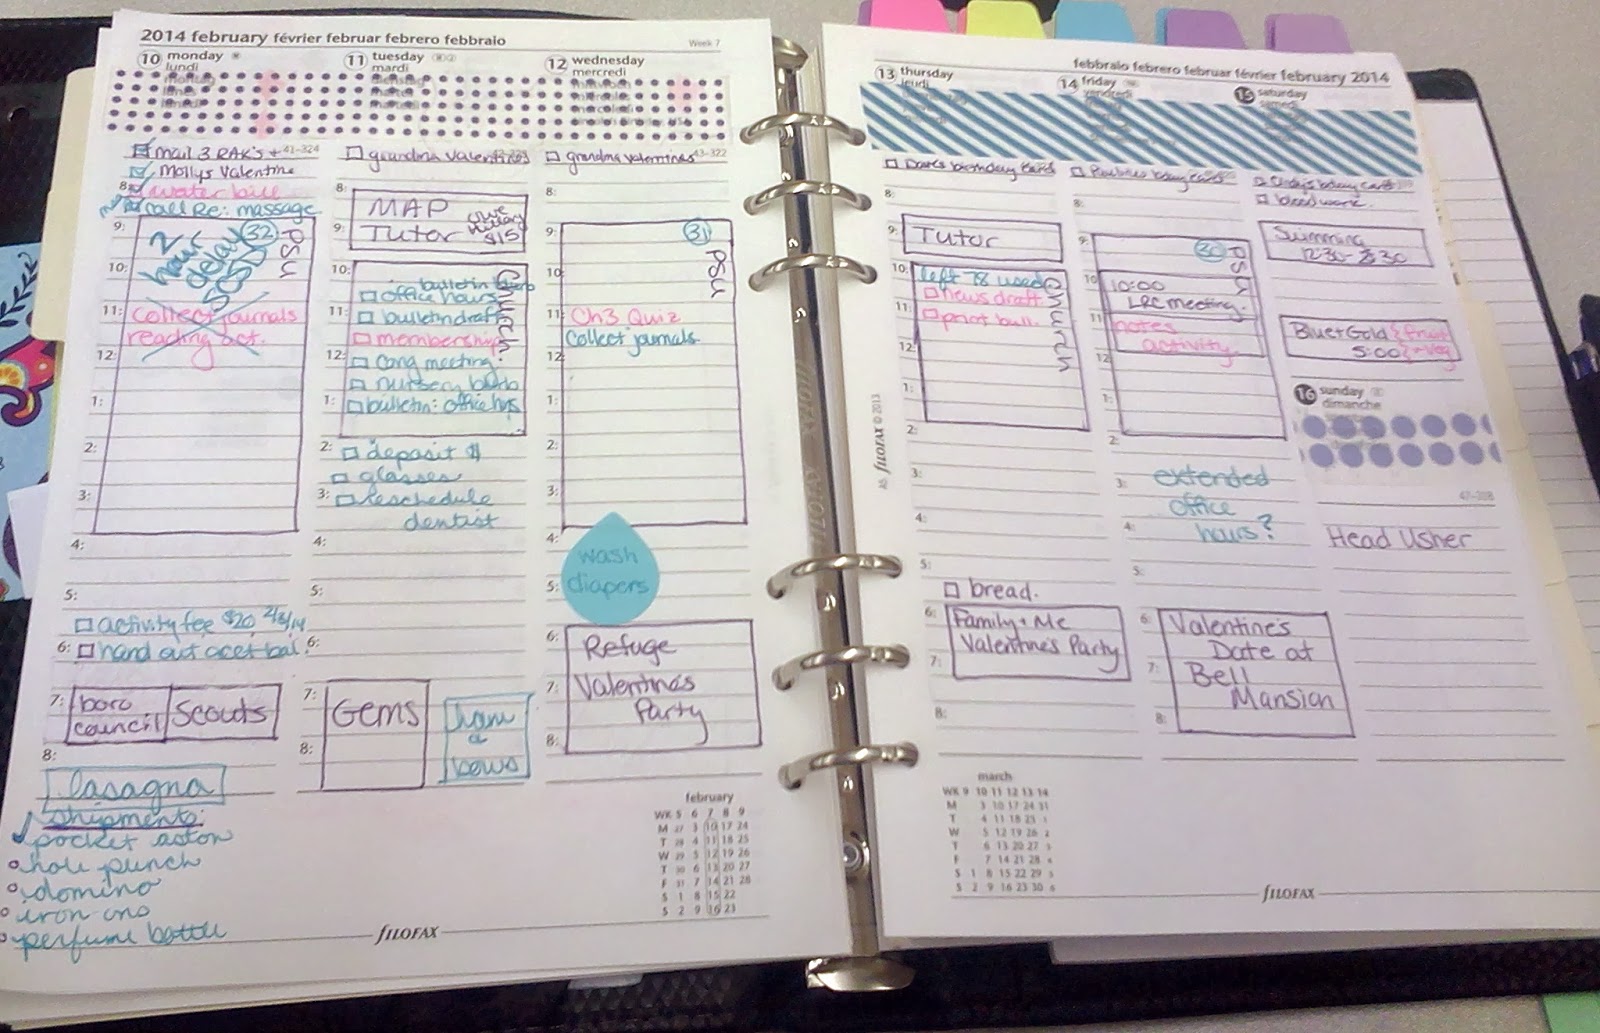 2014 february février februar febrero febbraio
Week 7
10 monday
lundi
mail 3 RAK's +
Mollys Valentine
8: water bill
call Re: massage
9: 2 hour delay SCSD
32
PSU
10:
11: collect journals
reading act.
12:
1:
2:
3:
4:
5:
activity fee $20 2/3/14
6: hand out acct bal.
7: boro council
Scouts
8:
lasagna
shipments:
pocket aston
hole punch
domino
iron ons
perfume bottle
11 tuesday
mardi
grandma valentines
8: MAP
9: Tutor
$15
10:
church
bulletin
office hours
11: bulletin draft
membership
12: cong meeting
nursery
1: bulletin: office hrs
2: deposit $
glasses
3: reschedule
dentist
4:
5:
6:
7: Gems
8:
ham
a
bows
12 wednesday
mercredi
grandma valentines
43-322
8:
9:
31
PSU
10:
11: Ch3 Quiz
collect journals
12
1:
2:
3:
4:
wash
5: diapers
6: Refuge
7: Valentine's
Party
8:
february
WK 5 6 7 8 9
M 27 3 10 17 24
T 28 4 11 18 25
W 29 5 12 19 26
T 30 6 13 20 27
F 31 7 14 21 28
S 1 8 15 22
S 2 9 16 23
FILOFAX
febbraio febrero februar février february 2014
13 thursday
jeudi
Dave's birthday card
8:
9: Tutor
10: left 78 used
church
11: news draft
print bull.
12:
1:
2:
3:
4:
5:
bread.
6: Family + Me
Valentine's Party
7:
8:
14 friday
vendredi
8:
9:
30
PSU
10 10:00
LRC meeting.
11 notes
activity
12
1:
2:
3: extended
office
4: hours?
5:
6: Valentine's
Date at
7: Bell
Mansion
8:
15 saturday
samedi
bloodwork.
Swimming
Blue + Gold
5:00
fruit
+ veg
16 sunday
dimanche
47-318
Head Usher
A5 FILOFAX © 2013
march
WK 9 10 11 12 13 14
M 3 10 17 24 31
T 4 11 18 25 1
W 5 12 19 26 2
T 6 13 20 27 3
F 7 14 21 28 4
S 1 8 15 22 29 5
S 2 9 16 23 30 6
FILOFAX